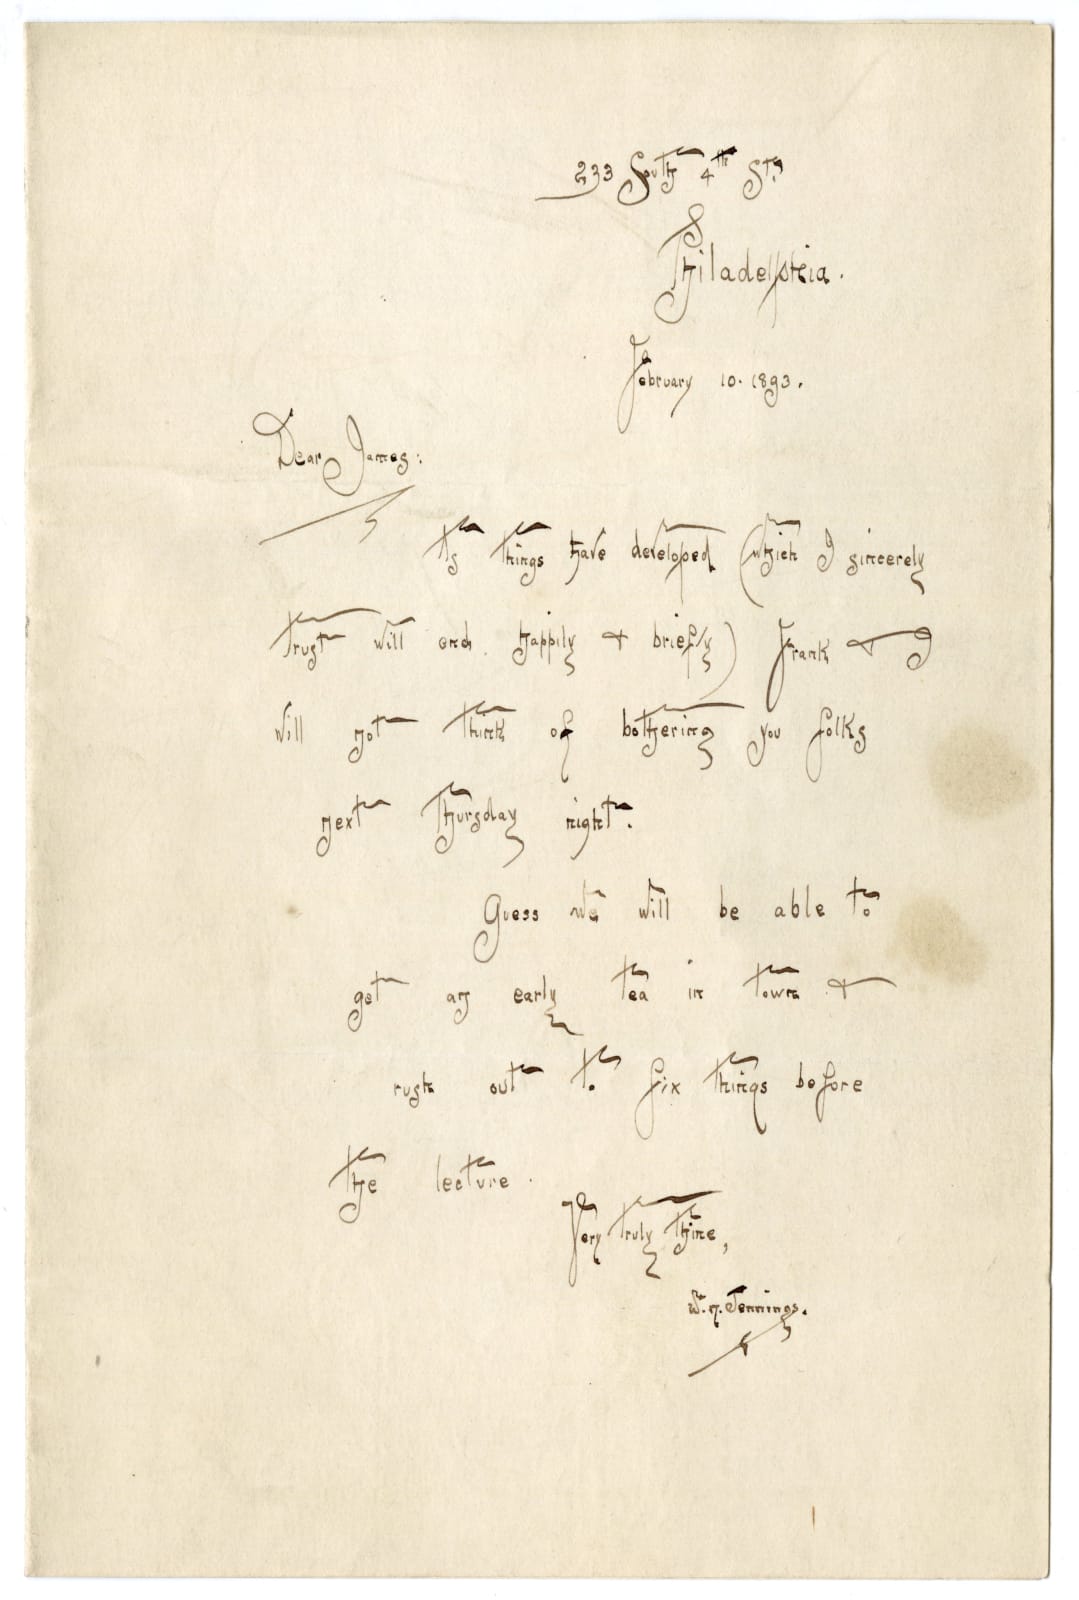 233 South 4th St.
Philadelphia.
February 10. 1893.
Dear James:
As things have developed (which I sincerely
trust will end happily & briefly) Frank & I
will not think of bothering you folks
next Thursday night.
Guess we will be able to
get an early tea in town &
rush out to fix things before
the lecture.
Very truly thine,
W. N. Jennings.